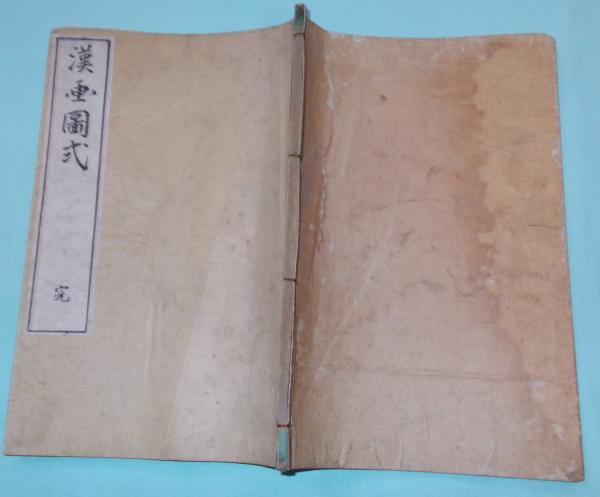 漢画圖式
完